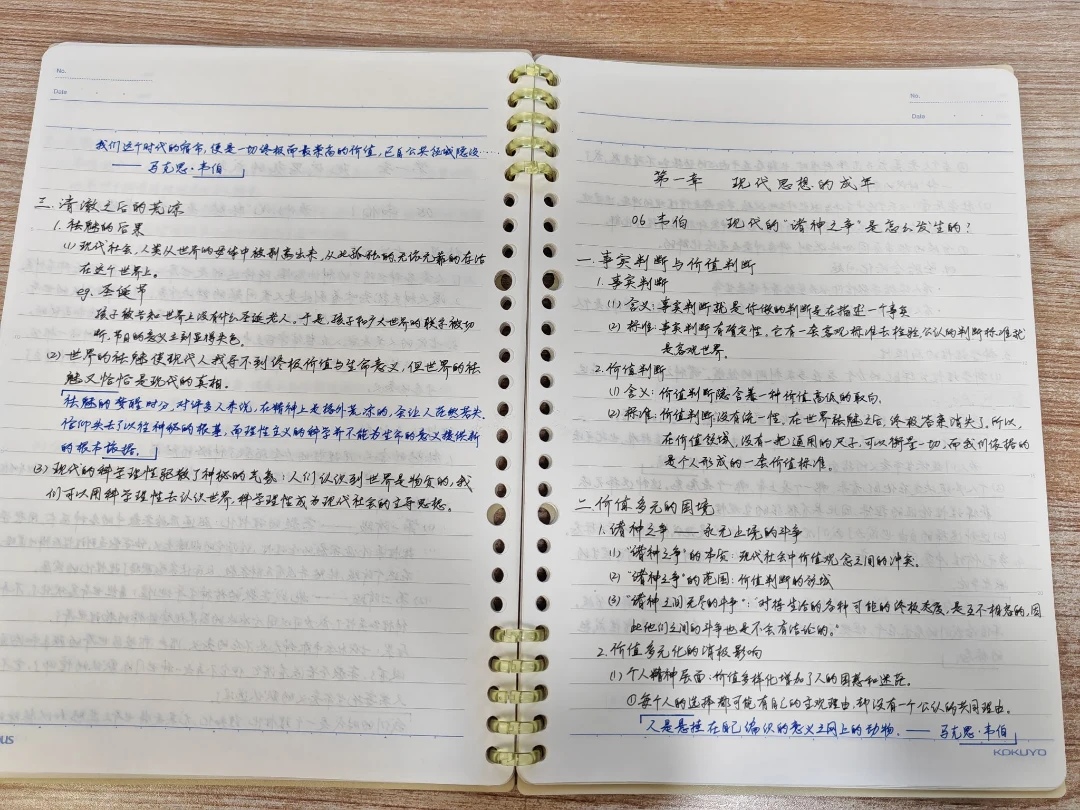 No.
Date
我们这个时代的宿命，便是一切终极而最崇高的价值，已自公共领域隐没……
——马克思·韦伯
三. 清澈之后的荒凉
1. 祛魅的后果
(1) 现代社会，人类从世界的母体中被剥离出来，从此孤独的、无依无靠的存活
在这个世界上。
eg. 圣诞节
孩子被告知世界上没有什么圣诞老人。于是，孩子和广大世界的联系被切
断，节日的意义立刻显得失色。
(2) 世界的祛魅使现代人找寻不到终极价值与生命意义，但世界的祛
魅又恰恰是现代的真相。
「祛魅的梦醒时分，对许多人来说，在精神上是格外荒凉的，会让人茫然若失，
信仰失去了以往神秘的根基，而理性主义的科学并不能为生命的意义提供新
的根本依据。」
(3) 现代的科学理性驱散了神秘的气象：人们认识到世界是物食的，我
们可以用科学理性去认识世界，科学理性成为现代社会的主导思想。
No.
Date
第一章 现代思想的成年
06 韦伯 现代的“诸神之争”是怎么发生的？
一. 事实判断与价值判断
1. 事实判断
(1) 含义：事实判断就是你做的判断是在描述一个事实
(2) 标准：事实判断有确定性。它有一套客观标准去检验，公认的判断标准就
是客观世界。
2. 价值判断
(1) 含义：价值判断隐含着一种价值高低的取向。
(2) 标准：价值判断没有统一性，在世界祛魅之后，终极答案消失了，所以，
在价值领域，没有一把通用的尺子，可以衡量一切，而我们依据的
是个人形成的一套价值标准。
二. 价值多元的困境
1. 诸神之争——永无止境的斗争
(1) “诸神之争”的本质：现代社会中价值观念之间的冲突。
(2) “诸神之争”的范围：价值判断的领域
(3) “诸神之间无尽的斗争”：“对待生活的各种可能的终极态度，是互不相容的，因
此他们之间的斗争也是不会有结论的。”
2. 价值多元化的消极影响
(1) 个人精神层面：价值多样化增加了人的困惑和迷茫。
①每个人的选择都可能有自己的主观理由，却没有一个公认的共同理由。
「人是悬挂在自己编织的意义之网上的动物。——马克思·韦伯」
KOKUYO